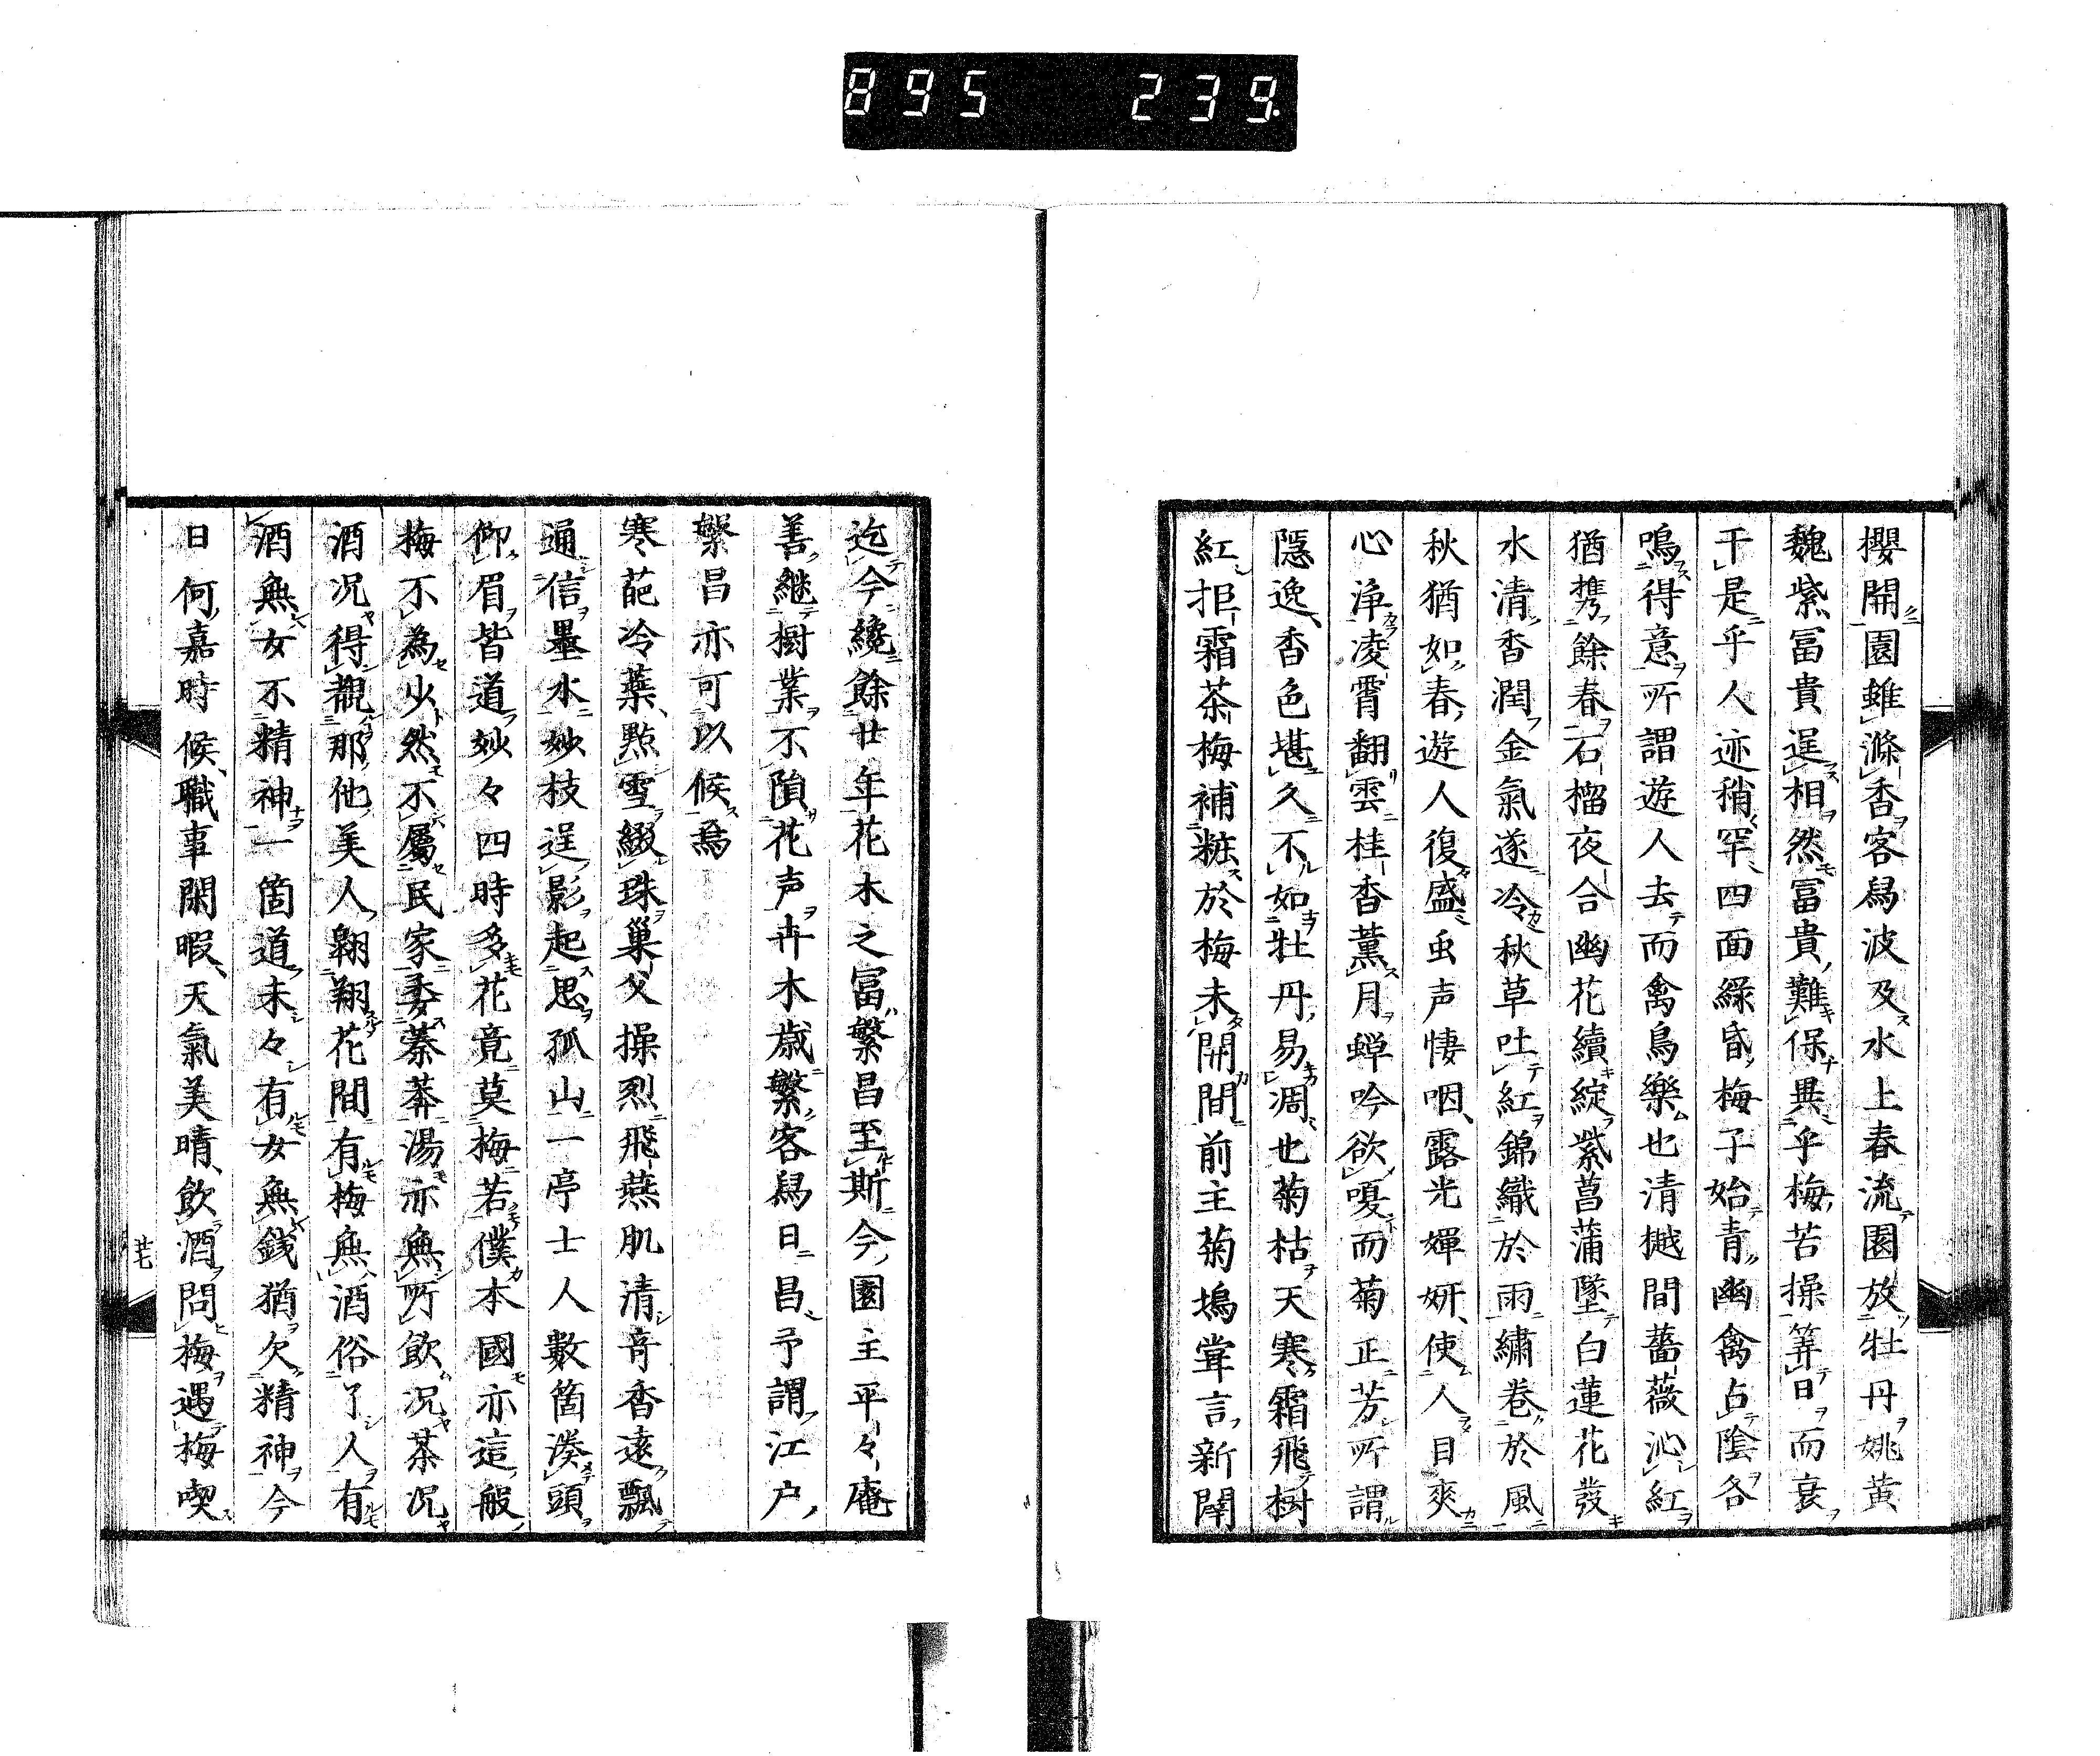 895 239
櫻開園雖滌香客舄波及水上春流園放牡丹姚黄
魏紫冨貴逞相然冨貴難保異乎梅苦操筭日而衰
于是乎人迹稍罕四面緑昏梅子始青幽禽占陰各
鳴得意所謂遊人去而禽鳥樂也清樾間薔薇沁紅
猶携餘春石榴夜合幽花續綻紫菖蒲墜白蓮花發
水清香潤金氣遂冷秋草吐紅錦織於雨繡巻於風
秋猶如春遊人復盛虫声悽咽露光嬋妍使人目爽
心浄凌霄翻雲桂香薫月蝉吟欲嗄而菊正芳所謂
隠逸香色堪久不如牡丹易凋也菊枯天寒霜飛樹
紅拒霜茶梅補粧於梅未開間前主菊塢甞言新闢
迄今纔餘廿年花木之富繁昌至斯今園主平々庵
善継樹業不隕花声卉木歳繁客舄日昌予謂江户
繁昌亦可以候焉
寒葩冷蘂點雪綴珠巣父操烈飛燕肌清竒香遠飄
通信墨水妙枝逞影起思孤山一亭士人數箇湊頭
仰眉皆道妙々四時多花竟莫梅若僕本國亦這般
梅不為少然不屬民家委蓁莽湯亦無所飲况茶况
酒况得覩那他美人翱翔花間有梅無酒俗了人有
酒無女不精神一箇道未々有女無銭猶欠精神今
日何嘉時候職事閑暇天氣美晴飲酒問梅遇梅喫
廿七